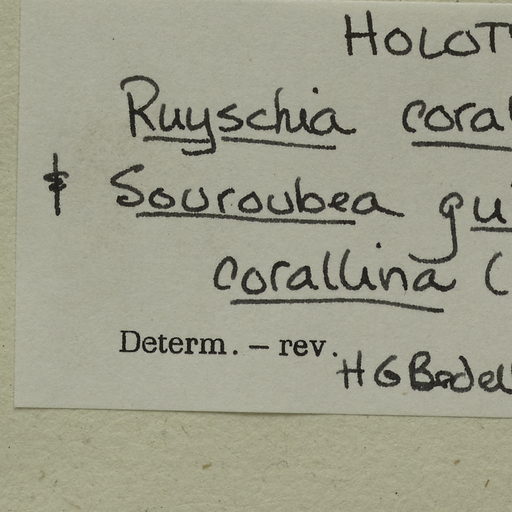 HOLOT
Ruyschia coral
‡ Souroubea gui
corallina (
Determ. – rev. H G Bedel